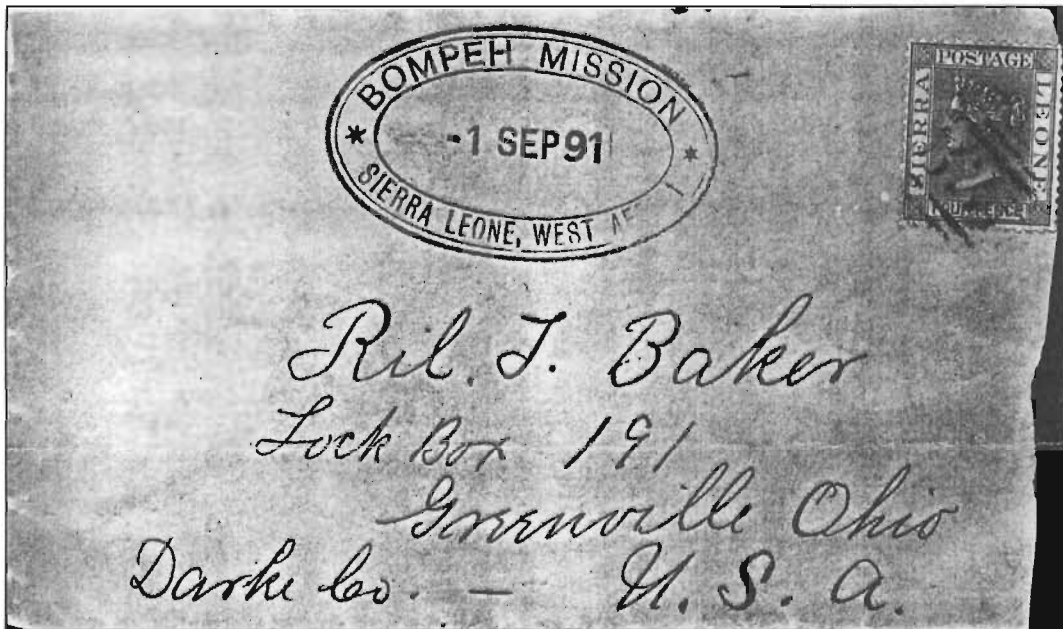 * BOMPEH MISSION *
-1 SEP 91
SIERRA LEONE, WEST
POSTAGE
SIERRA
LEONE
FOUR PENCE
Ril. T. Baker
Lock Box 191
Greenville Ohio
Darke Co. — U. S. A.